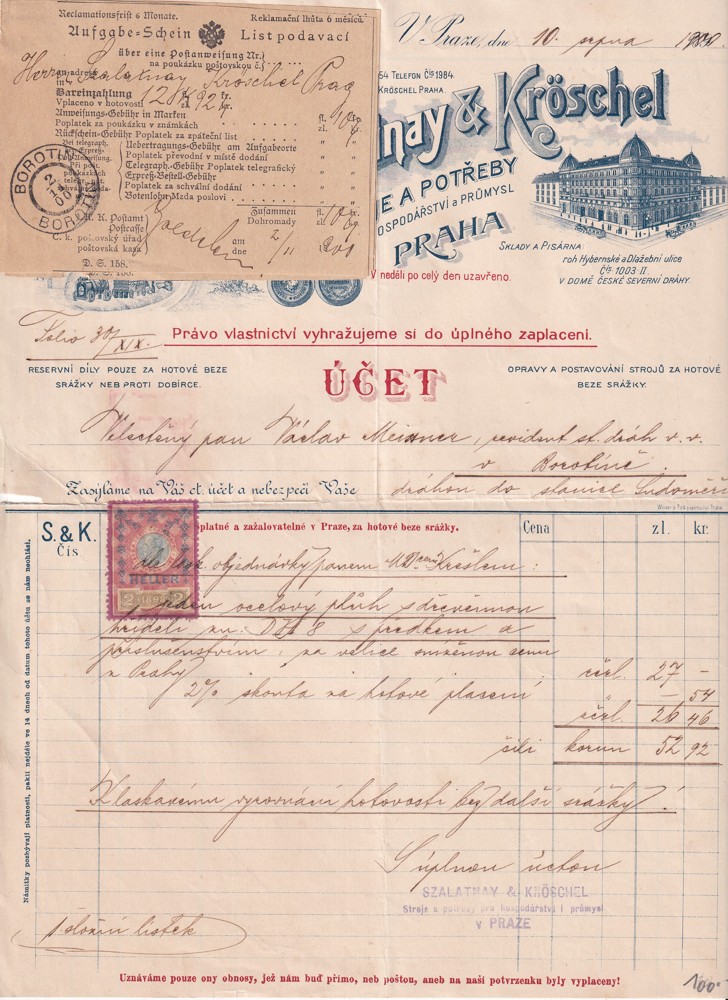 Reclamationsfrist 6 Monate. Reklamační lhůta 6 měsíců.
Aufgabe=Schein List podávací
über eine Postanweisung Nr.
na poukázku poštovskou č.
Herrn Szalatnay Kröschel Prag
Bareinzahlung
Vplaceno v hotovosti
Anweisungs-Gebühr in Marken
Poplatek za poukázku v známkách
Rückschein-Gebühr Poplatek za zpáteční list
Bei telegraph.
Übertragungs-Gebühr am Aufgabeorte
Poplatek převodní v místě dodání
Telegraph.-Gebühr Poplatek telegrafický
Expreß-Bestell-Gebühr
Poplatek za schvální dodání
Botenlohn Mzda poslovi
Zusammen
Dohromady
K. K. Postamt
Postcasse
C. k. poštovský úřad
poštovská kasa
am
dne
D. S. 158.
BOROTÍN
V Praze, dne 10. srpna
TELEFON Čís 1984.
KRÖSCHEL PRAHA.
& Kröschel
JE A POTŘEBY
HOSPODÁŘSTVÍ a PRŮMYSL
PRAHA
SKLADY A PISÁRNA:
roh Hybernské a Dlažební ulice
Čís 1003-II.
V DOMĚ ČESKÉ SEVERNÍ DRÁHY.
V neděli po celý den uzavřeno.
Folio 30/XIX.
Právo vlastnictví vyhražujeme si do úplného zaplacení.
RESERVNÍ DÍLY POUZE ZA HOTOVÉ BEZE
SRÁŽKY NEB PROTI DOBÍRCE.
ÚČET
OPRAVY A POSTAVOVÁNÍ STROJŮ ZA HOTOVÉ
BEZE SRÁŽKY.
Velectěný pan Václav Meixner, revident st. drah v. v.
v Borotíně.
Zasýláme na Váš ct. účet a nebezpečí Vaše dráhou do stanice Sudoměř
S. & K. splatné a zažalovatelné v Praze, za hotové beze srážky. Cena zl. kr.
Čís
HELLER
2 1898 2
objednávky panem Krešlem:
jeden ocelový pluh s dřevěnnou
hřídelí zn: 8 s předkem a
příslušenstvím, za velice sníženou cenu
z Prahy zl. 27 —
2% skonta za hotové placení — 54
26 46
čili korun 52 92
K laskavému vyrovnání hotovosti bez další srážky!
S úplnou úctou
SZALATNAY & KRÖSCHEL
Stroje a potřeby pro hospodářství i průmysl
v PRAZE
1 složní lístek
Námitky pozbývají platnosti, pakli nejdéle ve 14 dnech od datum tohoto účtu se nám neohlásí.
Uznáváme pouze ony obnosy, jež nám buď přímo, neb poštou, aneb na naši potvrzenku byly vyplaceny!
100-